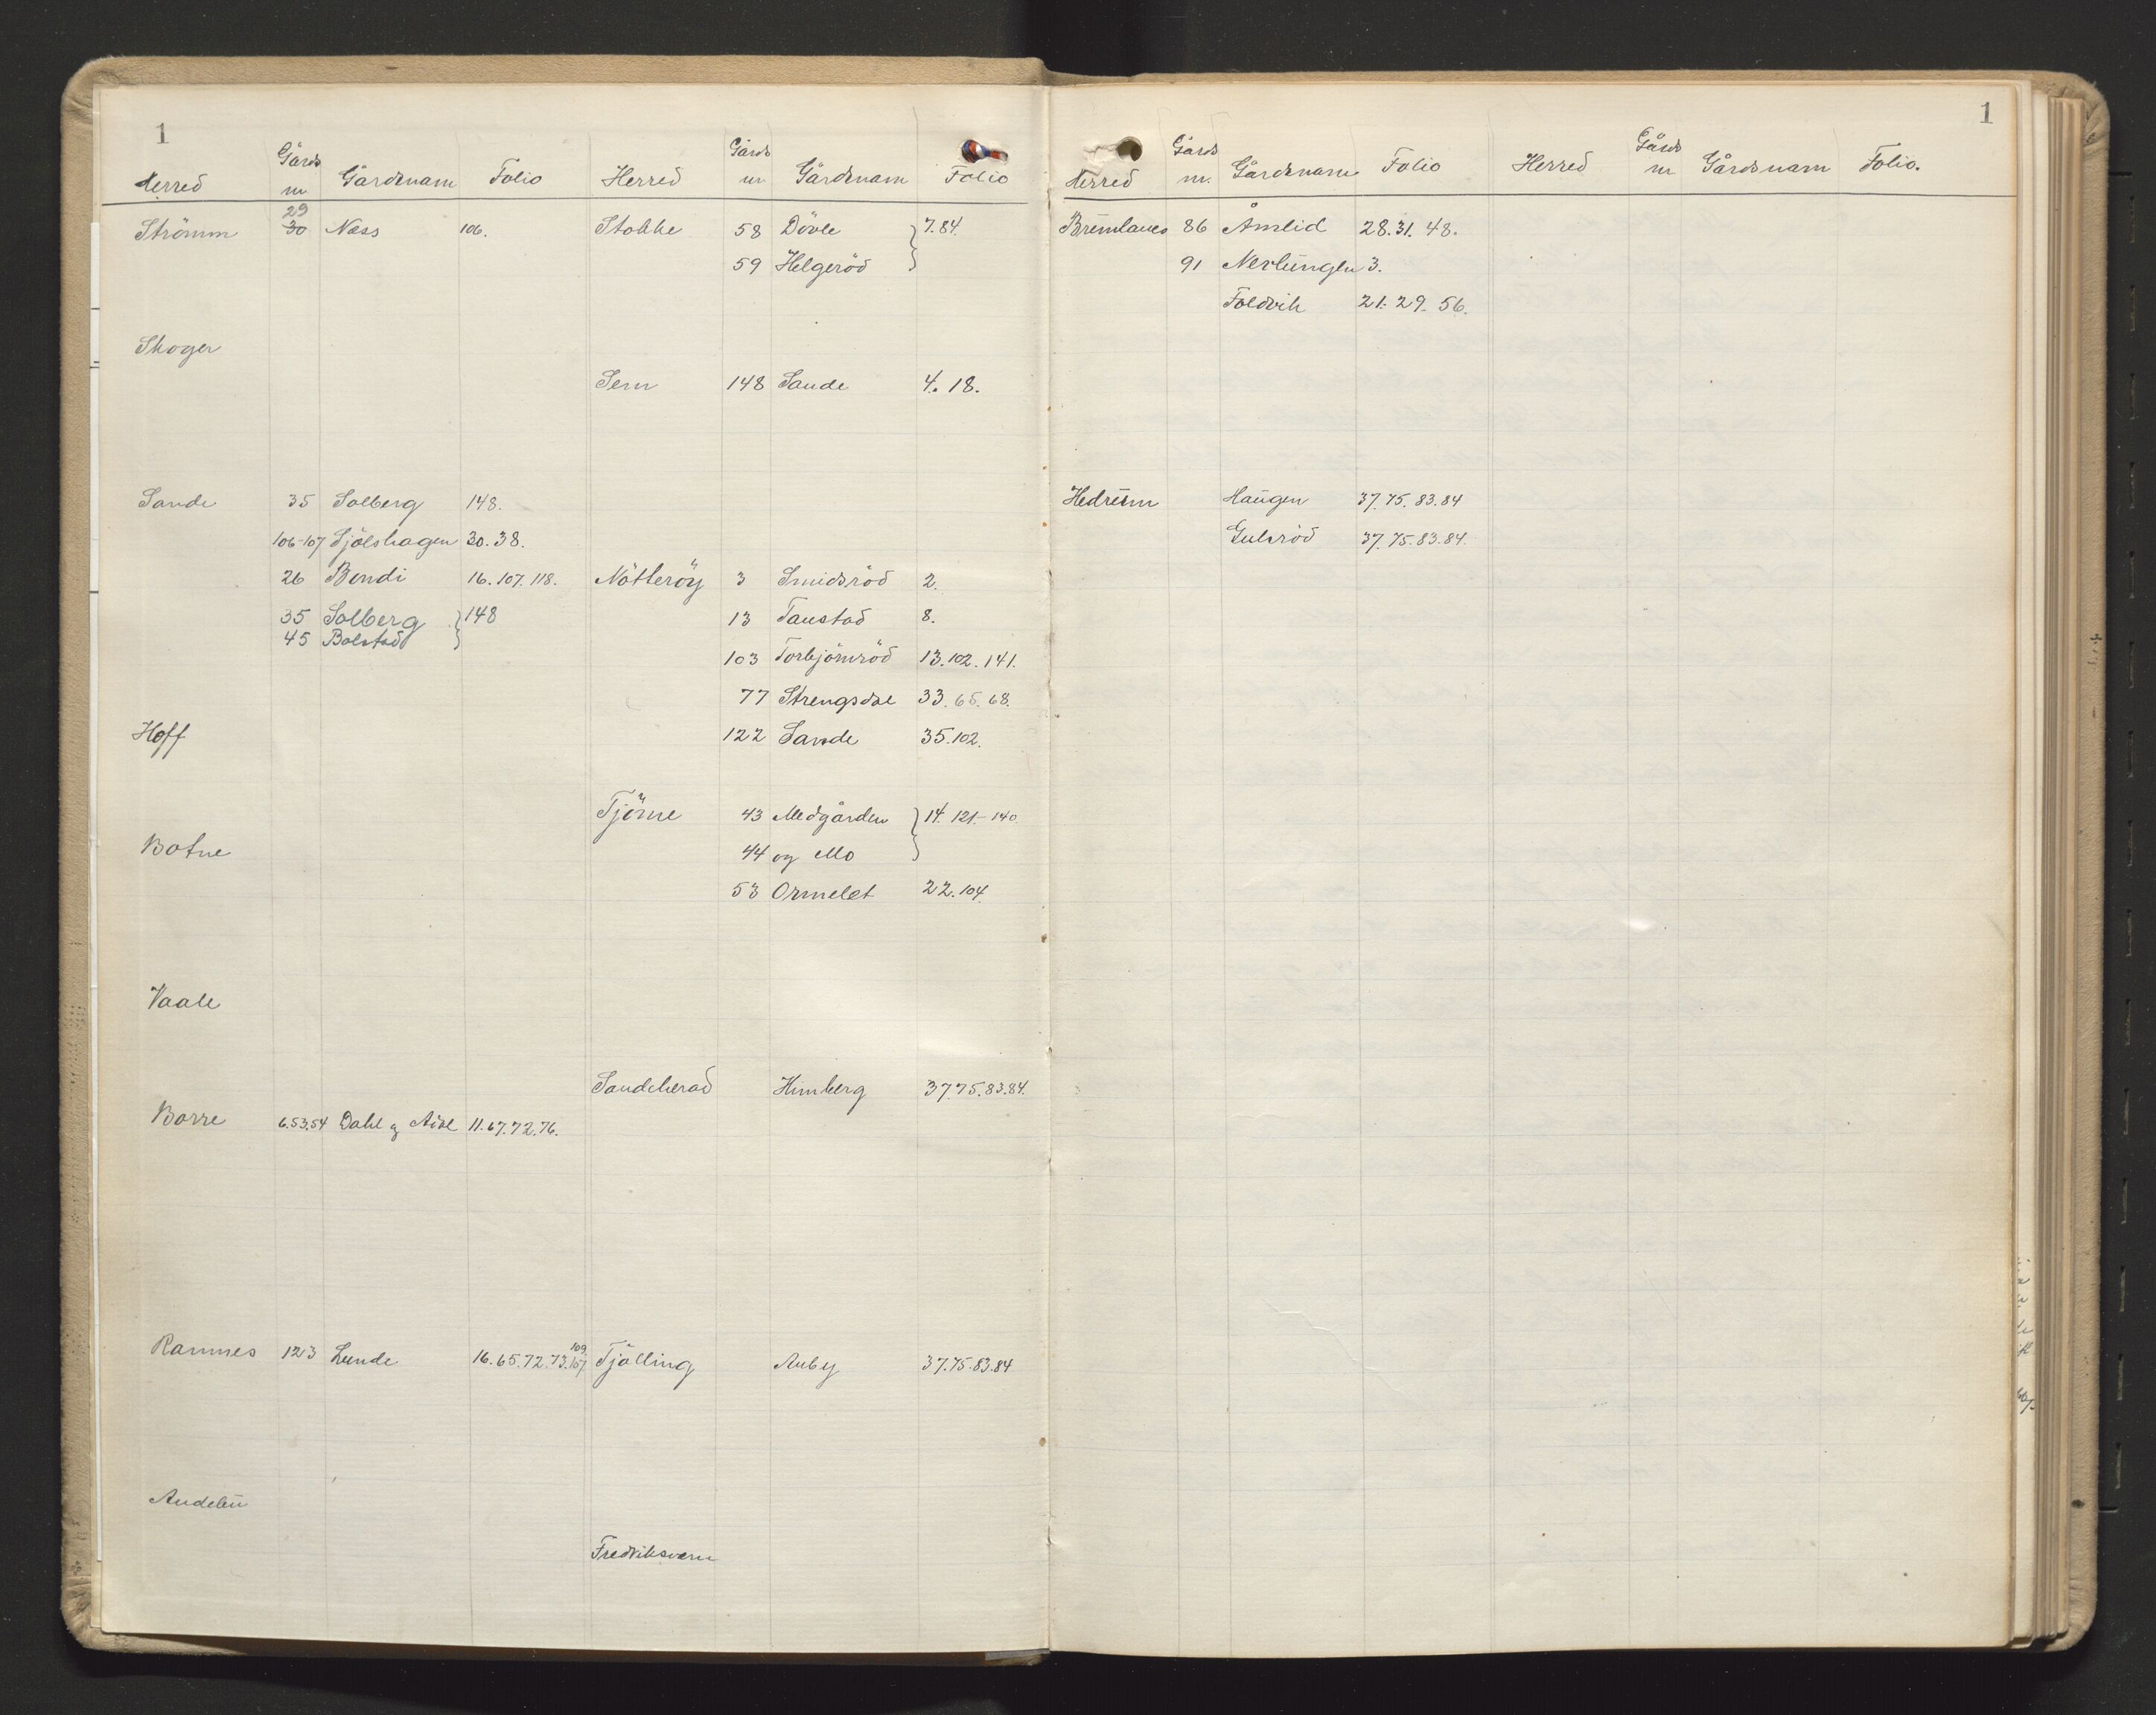 1
Herred Gårds nr Gårdsnam Folio Herred Gårds nr Gårdsnam Folio
Strömm 29 30 Næss 106. Stokke 58 Dövle 7.84.
59 Helgeröd
Skoger
Sem 148 Sande 4. 18.
Sande 35 Solberg 148.
106-107 Sjölshagen 30. 38.
26 Bendi 16. 107. 118. Nötteröy 3 Smidsröd 2.
35 Solberg 148 13 Taustad 8.
45 Bolstad
103 Torbjörnröd 13. 102. 141.
77 Strengsdal 33. 65. 68.
Hoff 122 Sande 35. 102.
Tjöme 43 Medgården 14. 121.- 140
Botne 44 og Mo
53 Ormelet 22. 104.
Vaale
Sandeherad Himberg 37 75. 83. 84.
Borre 6.53.54 Dahl og 11. 67. 72. 76.
Ramnes 123 Lunde 16. 65. 72. 73. 107 109. Tjölling Auby 37. 75. 83. 84
Andebu
Fredriksværn
1
Herred Gårds nr. Gårdsnam Folio Herred Gårds nr Gårdsnam Folio.
Brunlanes 86 Åmlid 28. 31. 48.
91 Nevlungen 3.
Foldvik 21. 29. 56.
Hedrum Haugen 37. 75. 83. 84
Gulsröd 37. 75. 83. 84.